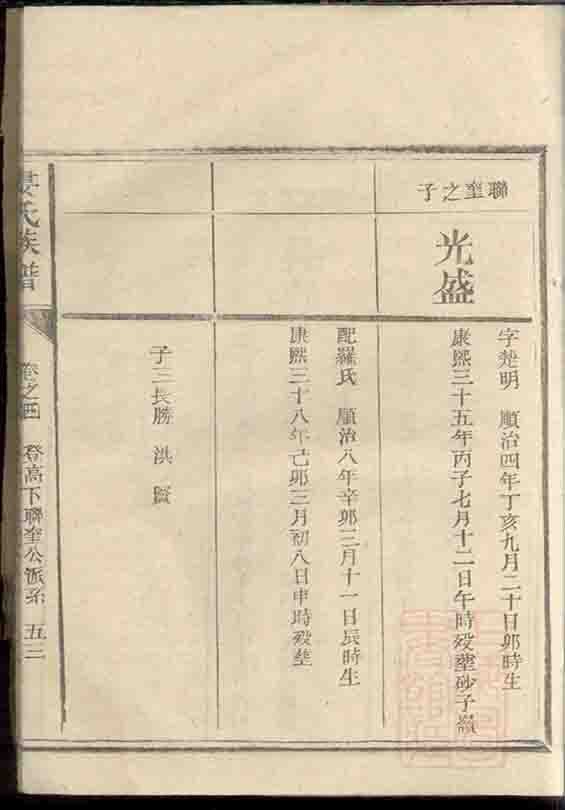 聯奎之子
光盛
字楚明 順治四年丁亥九月二十日卯時生
康熙三十五年丙子七月十二日午時歿塟砂子嶺
配羅氏 順治八年辛卯三月十一日辰時生
康熙三十八年己卯三月初八日申時歿塟
子三長勝 洪 賢
氏族譜
卷之四
登高下聯奎公派系 五三